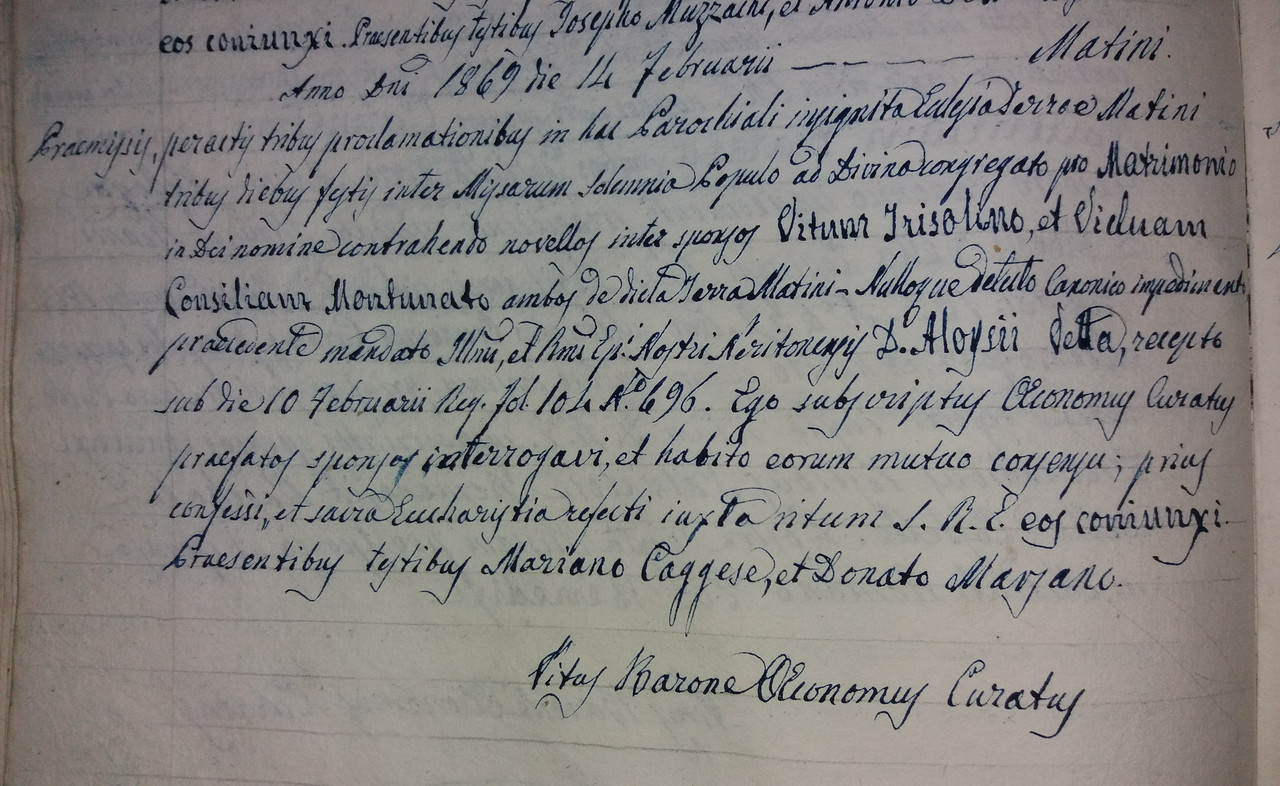 eos coniunxi. Praesentibus testibus Josepho Muzzachi, et Antonio
Anno Dni 1869 die 14 Februarii — — — — Matini.
Praemissis, peractis tribus proclamationibus in hac Parochiali insignita Eclesia Terrae Matini
tribus diebus festis inter Missarum solemnia Populo ad Divina congregato pro Matrimonio
in Dei nomine contrahendo novellos inter sponsos Vitum Trisolino, et Viduam
Consiliam Montunato ambos de dicta Terra Matini - Nulloque detecto Canonico impedimento
praecedente mandato Illmi, et Rmi Epi Nostri Neritonensis D. Aloysii Vetta, recepto
sub die 10 Februarii Reg. fol. 104 No. 696. Ego subscriptus Œconomus Curatus
praefatos sponsos interrogavi, et habito eorum mutuo consensu; prius
confessi, et sacra Eucharistia refecti iuxta ritum S. R. E. eos coniunxi.
Praesentibus testibus Mariano Caggese, et Donato Marsano.
Vitus Barone Œconomus Curatus